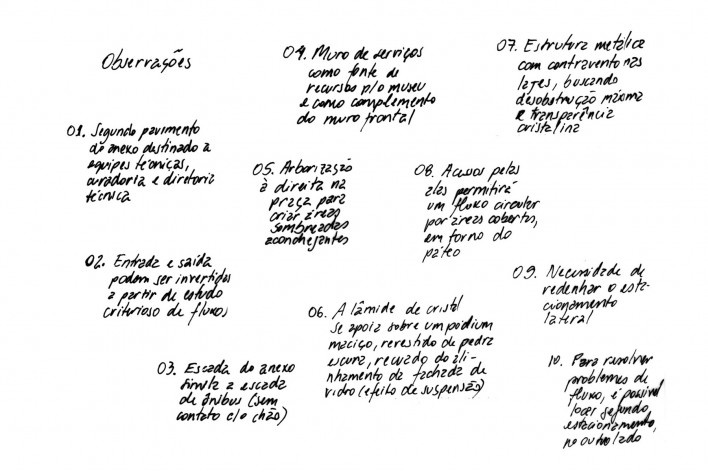 Observações
01. Segundo pavimento
do anexo destinado a
equipes técnicas,
curadoria e diretoria
técnica
02. Entrada e saída
podem ser invertidas
a partir de estudo
criterioso de fluxos
03. Escada do anexo
simula a escada
de ônibus (sem
contato c/o chão)
04. Muro de serviços
como fonte de
recursos p/o museu
e como complemento
do muro frontal
05. Arborização
à direita na
praça para
criar áreas
sombreadas
aconchegantes
06. A lâmide de cristal
se apoia sobre um pódium
maciço, revestido de pedra
escura, recuado do ali-
nhamento da fachada de
vidro (efeito de suspensão)
07. Estrutura metálica
com contravento nas
lajes, buscando
desobstrução máxima
e transparência
cristalina
08. Acessos pelas
alas permitirá
um fluxo circular
por áreas cobertas,
em torno do
páteo
09. Necessidade de
redenhar o esta-
cionamento
lateral
10. Para resolver
problemas de
fluxo, é possível
locar segundo
estacionamento,
no outro lado